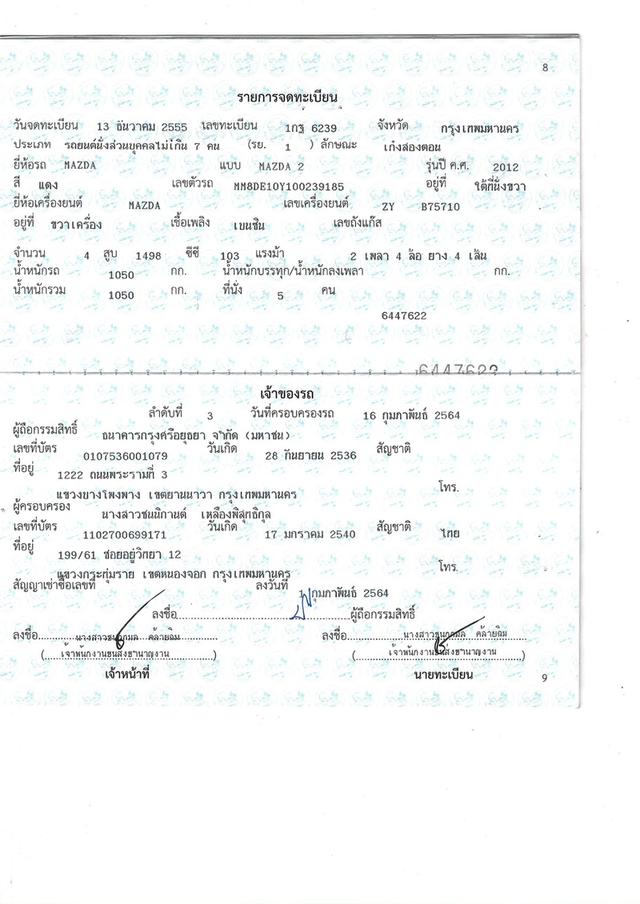 8
รายการจดทะเบียน
วันจดทะเบียน 13 ธันวาคม 2555 เลขทะเบียน 1กฐ 6239 จังหวัด กรุงเทพมหานคร
ประเภท รถยนต์นั่งส่วนบุคคลไม่เกิน 7 คน (รย. 1 ) ลักษณะ เก๋งสองตอน
ยี่ห้อรถ MAZDA แบบ MAZDA 2 รุ่นปี ค.ศ. 2012
สี แดง เลขตัวรถ MM8DE10Y100239185 อยู่ที่ ใต้ที่นั่งขวา
ยี่ห้อเครื่องยนต์ MAZDA เลขเครื่องยนต์ ZY B75710
อยู่ที่ ขวาเครื่อง เชื้อเพลิง เบนซิน เลขถังแก๊ส
จำนวน 4 สูบ 1498 ซีซี 103 แรงม้า 2 เพลา 4 ล้อ ยาง 4 เส้น
น้ำหนักรถ 1050 กก. น้ำหนักบรรทุก/น้ำหนักลงเพลา กก.
น้ำหนักรวม 1050 กก. ที่นั่ง 5 คน
6447622
6447622
เจ้าของรถ
ลำดับที่ 3 วันที่ครอบครองรถ 16 กุมภาพันธ์ 2564
ผู้ถือกรรมสิทธิ์ ธนาคารกรุงศรีอยุธยา จำกัด (มหาชน)
เลขที่บัตร 0107536001079 วันเกิด 28 กันยายน 2536 สัญชาติ
ที่อยู่ 1222 ถนนพระรามที่ 3
แขวงบางโพงพาง เขตยานนาวา กรุงเทพมหานคร โทร.
ผู้ครอบครอง นางสาวชนนิกานต์ เหลืองพิสุทธิกุล
เลขที่บัตร 1102700699171 วันเกิด 17 มกราคม 2540 สัญชาติ ไทย
ที่อยู่ 199/61 ซอยอยู่วิทยา 12
แขวงกระทุ่มราย เขตหนองจอก กรุงเทพมหานคร โทร.
สัญญาเช่าซื้อเลขที่ ลงวันที่ กุมภาพันธ์ 2564
ลงชื่อ ผู้ถือกรรมสิทธิ์
ลงชื่อ นางสาว คล้ายฉิม ลงชื่อ นางสาว คล้ายฉิม
(เจ้าพนักงานขนส่งชำนาญงาน) (เจ้าพนักงานขนส่งชำนาญงาน)
เจ้าหน้าที่ นายทะเบียน
9